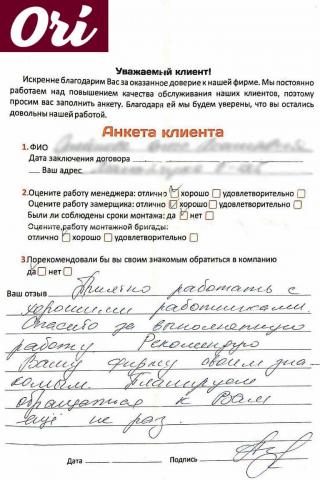 Ori
Уважаемый клиент!
Искренне благодарим Вас за оказанное доверие к нашей фирме. Мы постоянно
работаем над повышением качества обслуживания наших клиентов, поэтому
просим вас заполнить анкету. Благодаря ей мы будем уверены, что вы остались
довольны нашей работой.
Анкета клиента
1. ФИО
Дата заключения договора
Ваш адрес
2.Оцените работу менеджера: отлично хорошо удовлетворительно
Оцените работу замерщика: отлично хорошо удовлетворительно
Были ли соблюдены сроки монтажа: да нет
Оцените работу монтажной бригады:
отлично хорошо удовлетворительно
3.Порекомендовали бы вы своим знакомым обратиться в компанию
да нет
Ваш отзыв Приятно работать с
хорошими работниками.
Спасибо за выполненную
работу. Рекомендую
Вашу фирму своим зна-
комым. Планируем
обращаться к Вам
ещё не раз.
Дата Подпись